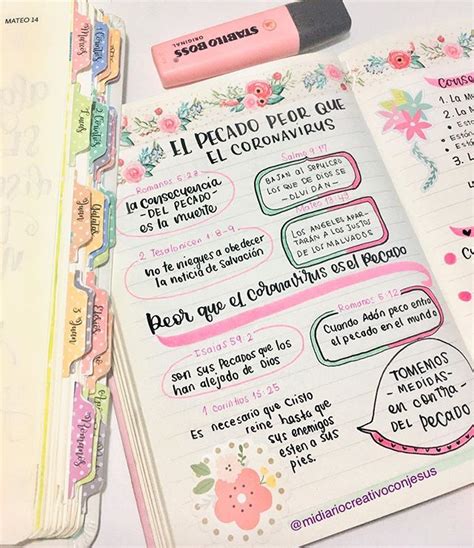 MATEO 14
STABILO BOSS
ORIGINAL
EL PECADO PEOR QUE
EL CORONAVIRUS
Romanos 6:23
La consecuencia
-DEL PECADO-
es la muerte
Salmo 9:17
BAJAN AL SEPULCRO
LOS QUE DE DIOS SE
-OLVIDAN-
2 Tesalonicen 1:8-9
no te niegues a obedecer
la noticia de Salvación
Mateo 13:49
LOS ANGELES APAR-
TARÁN A LOS JUSTOS
DE LOS MALVADOS
Peor que el coronavirus es el Pecado
Isaias 59:2
son sus Pecados que los
han alejado de Dios
Romanos 5:12
Cuando Adán peco entro
el pecado en el mundo
1 Corintios 15:25
Es necesario que Cristo
reine hasta que
sus enemigos
esten a sus
pies.
TOMEMOS
-MEDIDAS-
en contra
del
PECADO
@midiariocreativoconjesus
1. La
2. La
3. La
4. La
Romanos